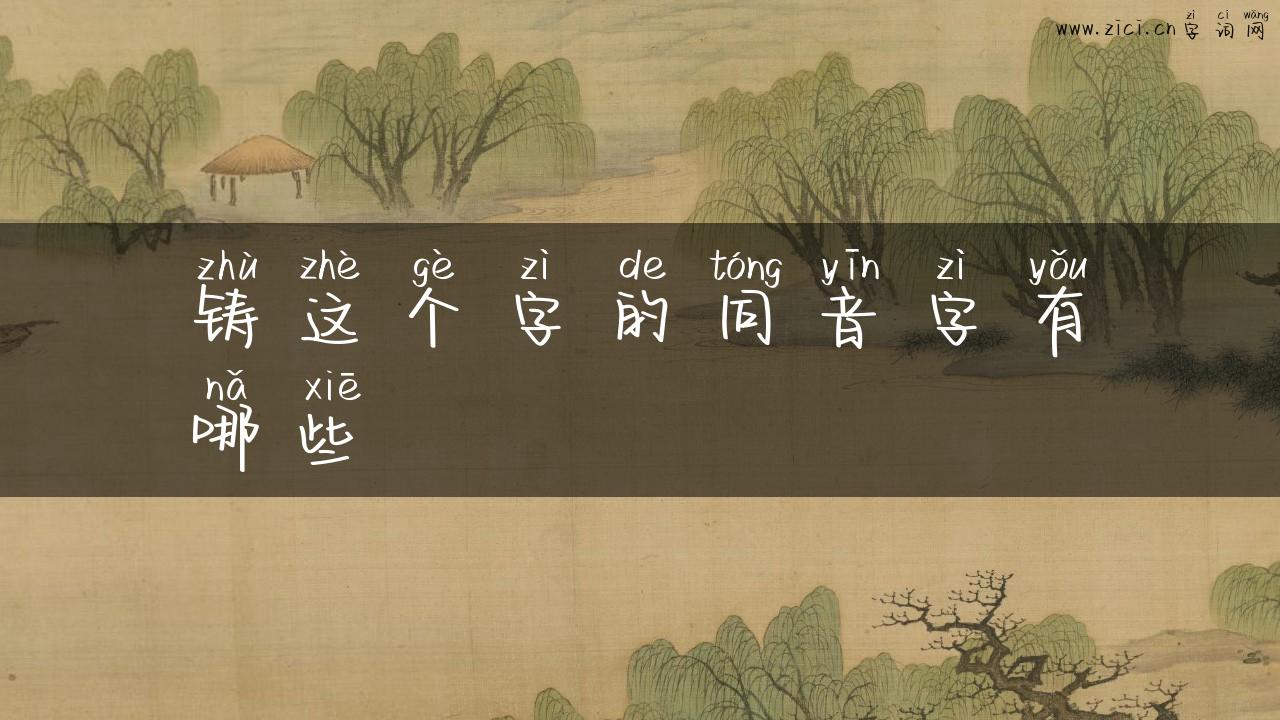 zì cí wǎng
www.zici.cn 字 词 网
zhù zhè gè zì de tóng yīn zì yǒu
铸 这 个 字 的 同 音 字 有
nǎ xiē
哪 些